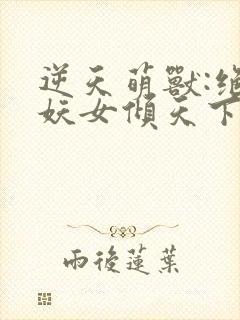 逆天萌獸:絕
妖女傾天下
雨後蓮葉